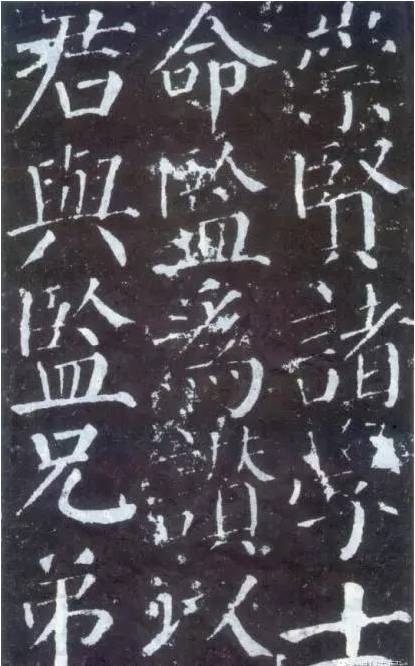 崇賢諸學士
命監為讚以
若與監兄弟